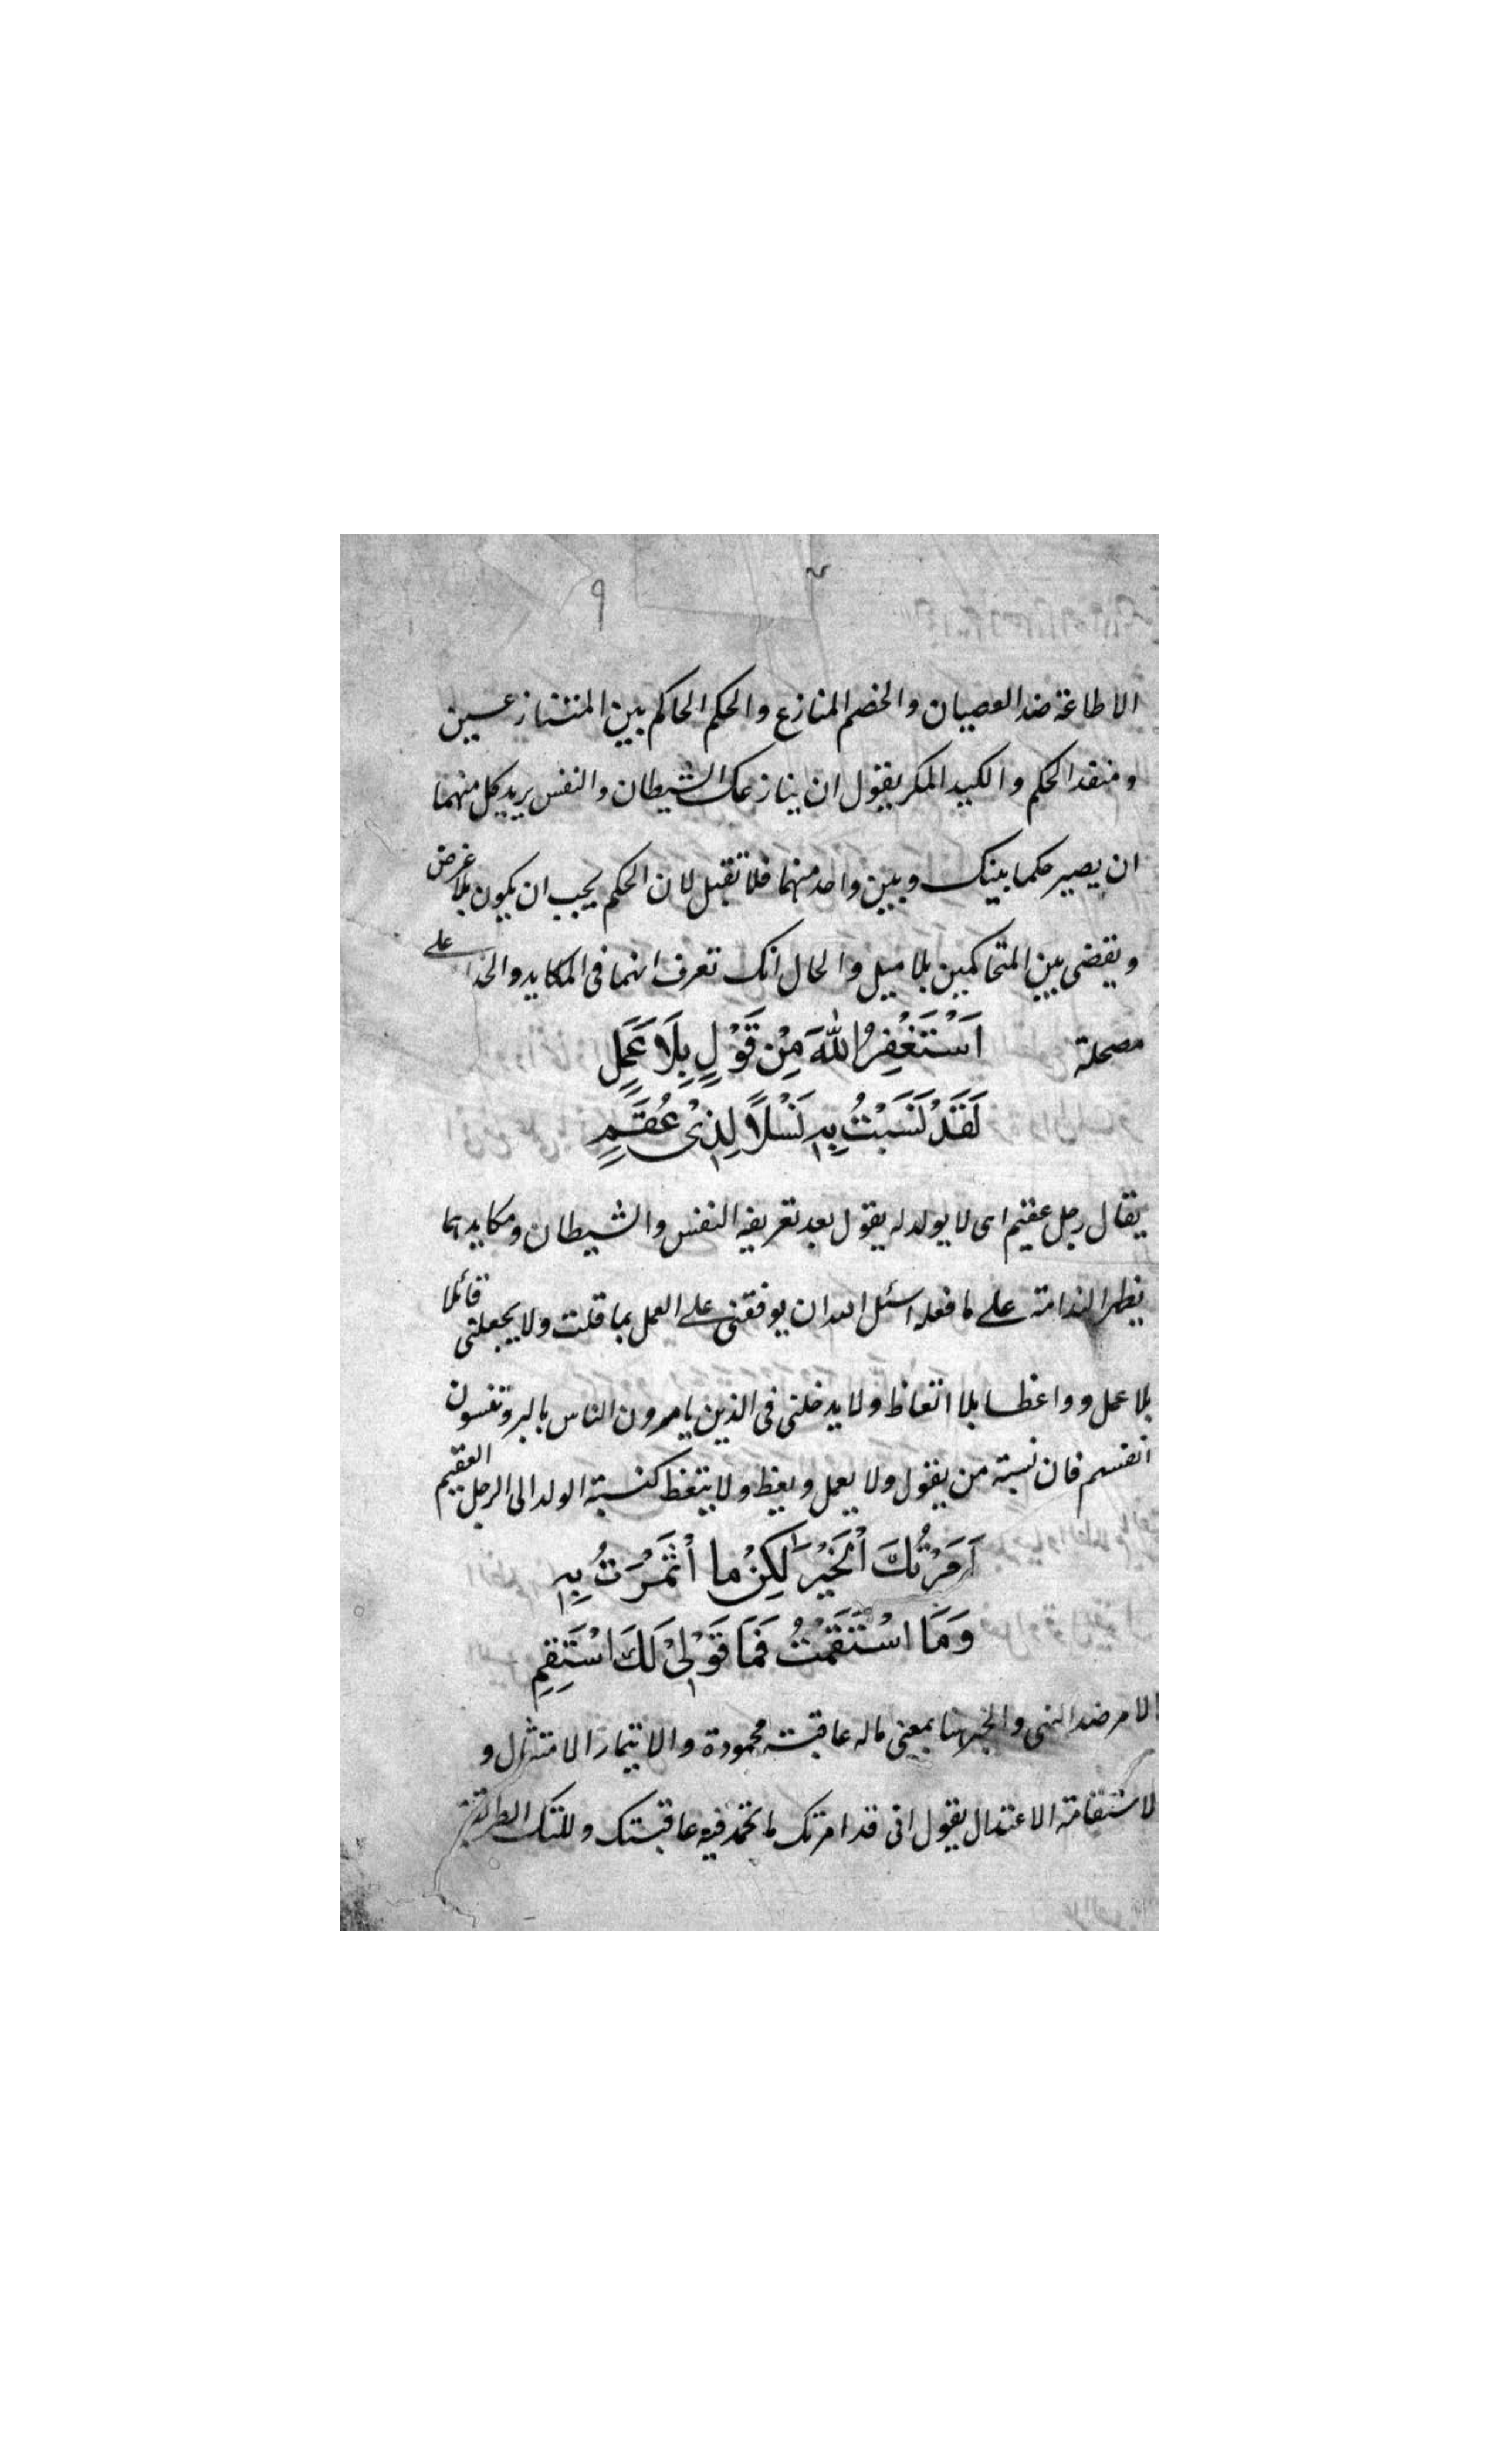 ٩
الاطاعة ضد العصيان والخصم المنازع والحكم الحاكم بين المتنازعين
ومنفذ الحكم والكيد المكر يقول ان ينازعك الشيطان والنفس يريد كل منهما
ان يصير حكما بينك وبين واحد منهما فلا تقبل لان الحكم يجب ان يكون بلا غرض
ويقضى بين المتحاكمين بلا ميل والحال انك تعرف انهما فى المكايد والخدا على
مصحلة
اَسْتَغْفِرُ اللّٰهَ مِنْ قَوْلٍ بِلَا عَمَلٍ
لَقَدْ نَسَبْتُ بِهٖ نَسْلًا لِذِىْ عُقُمٍ
يقال رجل عقيم اى لا يولد له يقول بعد تعريفه النفس والشيطان ومكايدهما
يظهر الندامة على ما فعله اسئل الله ان يوفقنى على العمل بما قلت ولا يجعلنى قائلا
بلا عمل وواعظا بلا اتعاظ ولا يدخلنى فى الذين يامرون الناس بالبر وتنسون
انفسهم فان نسبة من يقول ولا يعمل ويعظ ولا يتعظ كنسبة الولد الى الرجل العقيم
اَمَرْتُكَ الْخَيْرَ لٰكِنْ ما أْتَمَرْتُ بِهٖ
وَمَا اسْتَقَمْتُ فَمَا قَوْلِىْ لَكَ اسْتَقِمِ
الامر ضد النهى والخير هنا بمعنى ماله عاقبت محمودة والايتمار الامتثال و
الاستقامة الاعتدال يقول انى قد امرتك ما تحمد فيه عاقبتك وللتك الطريقة